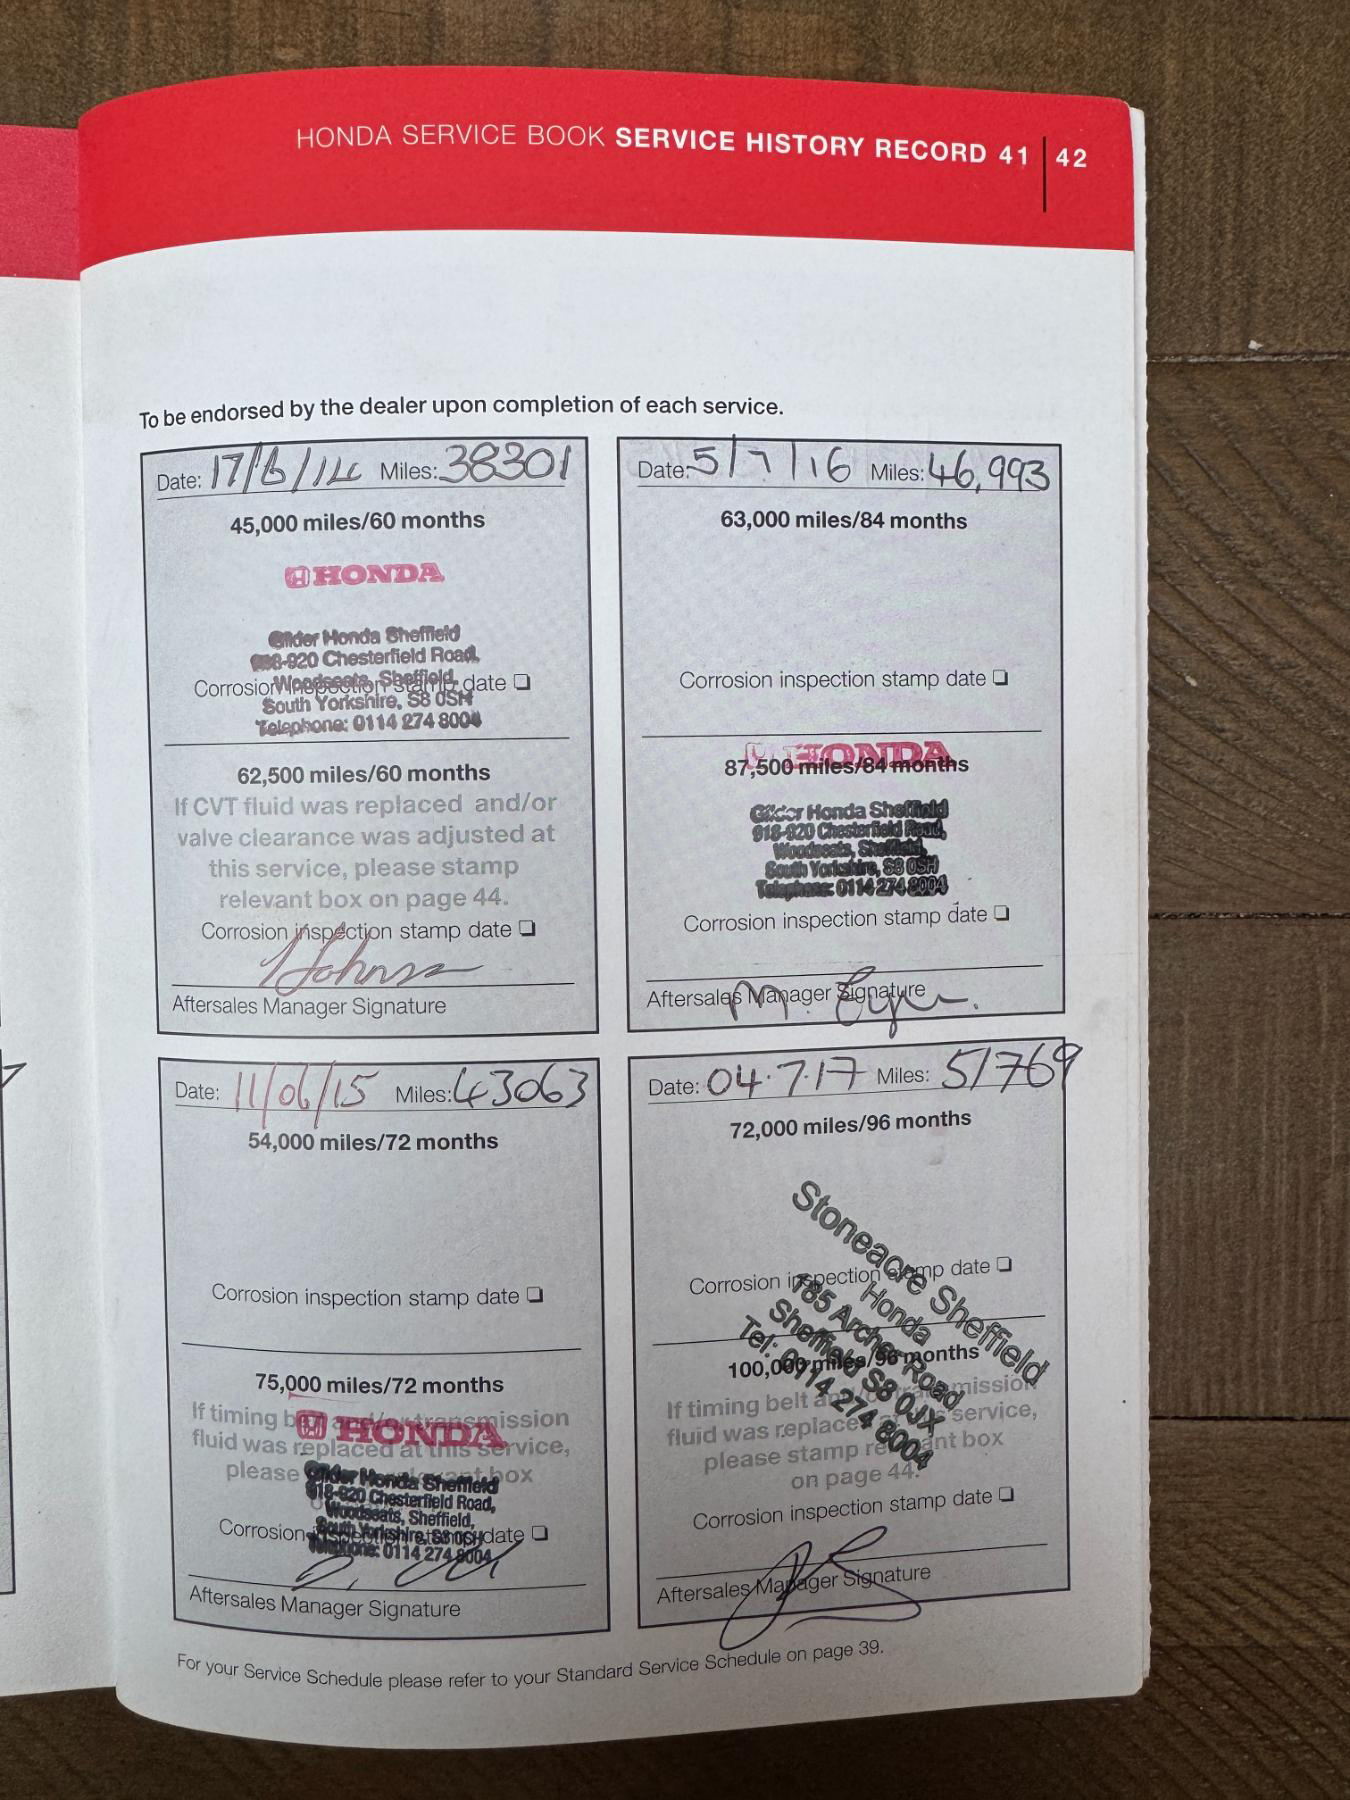 HONDA SERVICE BOOK SERVICE HISTORY RECORD 41 | 42
To be endorsed by the dealer upon completion of each service.
Date: 17/6/14 Miles: 38301
45,000 miles/60 months
HONDA
Gilder Honda Sheffield
918-920 Chesterfield Road,
Woodseats, Sheffield,
Corrosion inspection stamp date
South Yorkshire, S8 0SH
Telephone: 0114 274 8004
62,500 miles/60 months
If CVT fluid was replaced and/or
valve clearance was adjusted at
this service, please stamp
relevant box on page 44.
Corrosion inspection stamp date
Aftersales Manager Signature
Date: 11/06/15 Miles: 43063
54,000 miles/72 months
Corrosion inspection stamp date
75,000 miles/72 months
If timing belt and/or transmission
HONDA
fluid was replaced at this service,
please stamp relevant box
Gilder Honda Sheffield
918-920 Chesterfield Road,
Woodseats, Sheffield,
Corrosion inspection stamp date
South Yorkshire, S8 0SH
Telephone: 0114 274 8004
Aftersales Manager Signature
Date: 5/7/16 Miles: 46,993
63,000 miles/84 months
Corrosion inspection stamp date
HONDA
87,500 miles/84 months
Gilder Honda Sheffield
918-920 Chesterfield Road,
Woodseats, Sheffield,
South Yorkshire, S8 0SH
Telephone: 0114 274 8004
Corrosion inspection stamp date
Aftersales Manager Signature
Date: 04.7.17 Miles: 51769
72,000 miles/96 months
Stoneacre Sheffield
Honda
785 Archer Road
Sheffield S8 0JX
Tel: 0114 274 8004
Corrosion inspection stamp date
100,000 miles/96 months
If timing belt and/or transmission
fluid was replaced at this service,
please stamp relevant box
on page 44.
Corrosion inspection stamp date
Aftersales Manager Signature
For your Service Schedule please refer to your Standard Service Schedule on page 39.